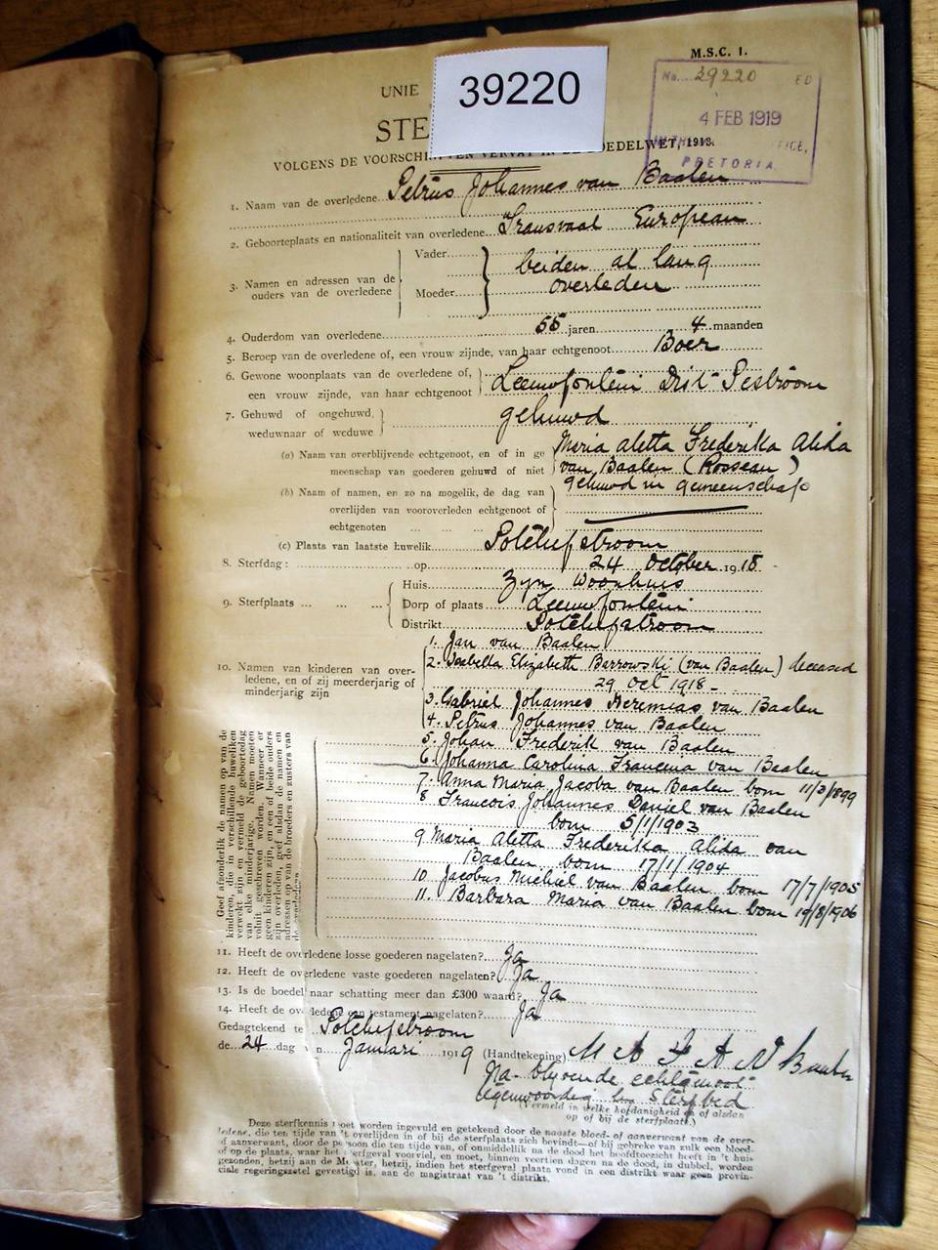 M.S.C. 1.
39220
No. 39220 ED
4 FEB 1919
PRETORIA
UNIE
STE
VOLGENS DE VOORSCHRIFTEN VERVAT IN DE BOEDELWET, 1913.
1. Naam van de overledene Petrus Johannes van Baalen
2. Geboorteplaats en nationaliteit van overledene Transvaal European
3. Namen en adressen van de ouders van de overledene
Vader
Moeder
beiden al lang
overleden
4. Ouderdom van overledene 55 jaren 4 maanden
5. Beroep van de overledene of, een vrouw zijnde, van haar echtgenoot Boer
6. Gewone woonplaats van de overledene of,
een vrouw zijnde, van haar echtgenoot Leeuwfontein Dist Pestroom
7. Gehuwd of ongehuwd,
weduwnaar of weduwe gehuwd
(a) Naam van overblijvende echtgenoot, en of in ge
meenschap van goederen gehuwd of niet
Maria Aletta Frederika Alida
van Baalen (Rosseau)
gehuwd in gemeenschap
(b) Naam of namen, en zo na mogelik, de dag van
overlijden van vooroverleden echtgenoot of
echtgenoten
(c) Plaats van laatste huwelik Potchefstroom
8. Sterfdag: op 24 October 1918
9. Sterfplaats
Huis Zyn Woonhuis
Dorp of plaats Leeuwfontein
Distrikt Potchefstroom
10. Namen van kinderen van over-
ledene, en of zij meerderjarig of
minderjarig zijn
1. Jan van Baalen
2. Isabella Elizabeth Barrowski (van Baalen) deceased
29 Oct 1918 -
3. Gabriel Johannes Jeremias van Baalen
4. Petrus Johannes van Baalen
5. Johan Frederik van Baalen
6. Johanna Carolina Francina van Baalen
7. Anna Maria Jacoba van Baalen born 11/3/1899
8 Francois Johannes Daniel van Baalen
born 5/1/1903
9 Maria Aletta Frederika Alida van
Baalen born 17/1/1904
10 Jacobus Michiel van Baalen born 17/7/1905
11. Barbara Maria van Baalen born 19/8/1906
Geef afzonderlik de namen op van de
kinderen, die in verschillende huweliken
verwekt zijn en vermeld de geboortedag
van elke minderjarige. Namen moeten
voluit geschreven worden. Wanneer er
geen kinderen zijn, en een of beide ouders
zijn overleden, geef alsdan de namen en
adressen op van de broeders en zusters van
de overledene
11. Heeft de overledene losse goederen nagelaten? Ja
12. Heeft de overledene vaste goederen nagelaten? Ja
13. Is de boedel naar schatting meer dan £300 waard? Ja
14. Heeft de overledene een testament nagelaten? Ja
Gedagtekend te Potchefstroom
de 24 dag van Januari 1919 (Handtekening) M A F A V Baalen
Na blyvende echtgenoot
tegenwoordig by sterfbed
(Vermeld in welke hoedanigheid en of alsdan
op of bij de sterfplaats.)
Deze sterfkennis moet worden ingevuld en getekend door de naaste bloed- of aanverwant van de over-
ledene, die ten tijde van 't overlijden in of bij de sterfplaats zich bevindt—of bij gebreke van zulk een bloed-
of aanverwant, door de persoon die ten tijde van, of onmiddellik na de dood het hoofdtoezicht heeft in 't huis
of op de plaats, waar het sterfgeval voorviel, en moet, binnen veertien dagen na de dood, in dubbel, worden
gezonden, hetzij aan de Meester, hetzij, indien het sterfgeval plaats vond in een distrikt waar geen provin-
ciale regeringszetel gevestigd is, aan de magistraat van 't distrikt.